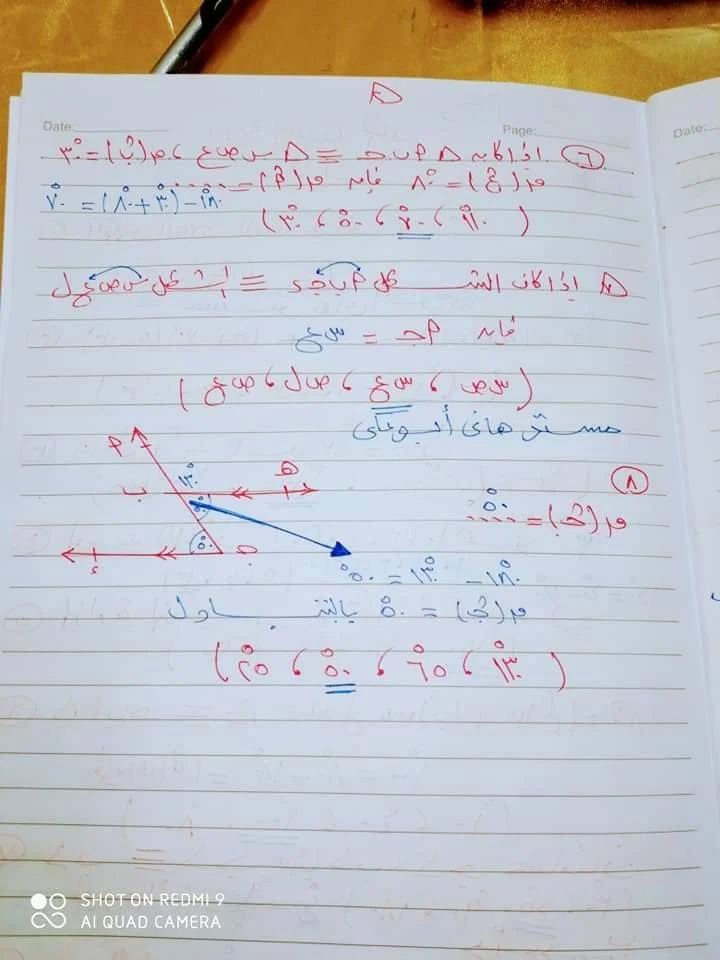 Date:
Page:
Date:
٦ إذا كان △ أ ب جـ ≡ △ س ص ع ، ق(ب̂) = ٣٠°
ق(ع̂) = ٨٠° فإن ق(أ̂) = ......
١٨٠ - (٣٠° + ٨٠°) = ٧٠°
(١١٠° ، ٧٠° ، ٥٠° ، ٣٠°)
٧ إذا كان الشكل أ ب جـ د ≡ الشكل س ص ع ل
فإن أ جـ = س ع
(س ص ، س ع ، ص ل ، ص ع)
مستر هانى أبو على
٨
ق(جـ̂) = ..... ٥٠°
أ
١٣٠°
هـ
ب
٥٠°
٥٠°
جـ
د
١٨٠° - ١٣٠° = ٥٠°
ق(جـ̂) = ٥٠° بالتبادل
(١٣٠° ، ٦٥° ، ٥٠° ، ٢٥°)
SHOT ON REDMI 9
AI QUAD CAMERA